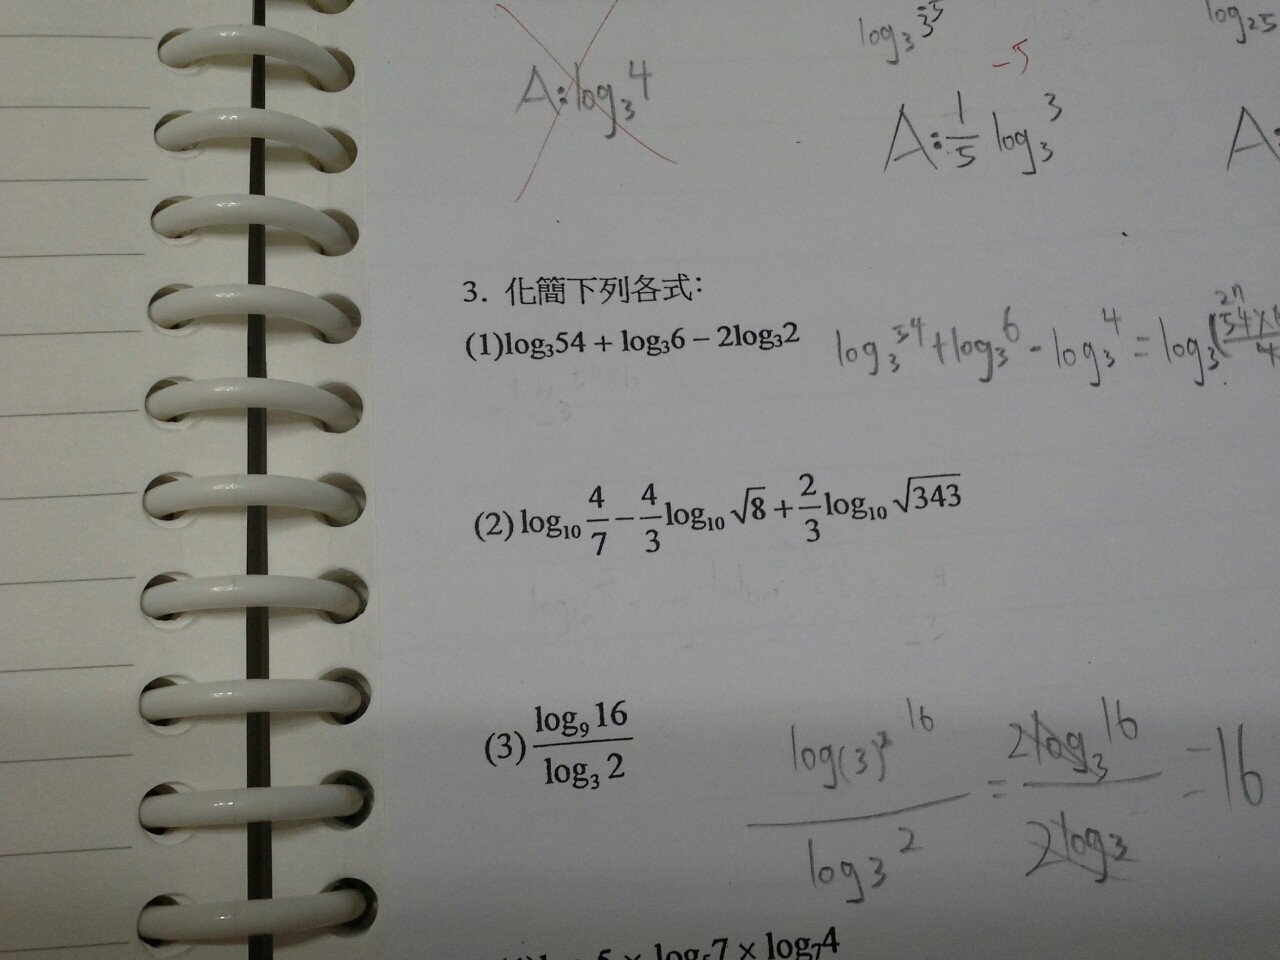 log₃3⁻⁵
log₂₅
-5
A:log₃4
A:1/5 log₃3
A:
3. 化簡下列各式:
(1)log₃54 + log₃6 − 2log₃2
log₃54+log₃6-log₃4=log₃(54×
27
4
(2) log₁₀ 4/7 − 4/3 log₁₀ √8 + 2/3 log₁₀ √343
(3) log₉ 16 / log₃ 2
log(3)² 16 / log₃ 2 = 2log₃16 / 2log₃ = 16
7 × log₇4